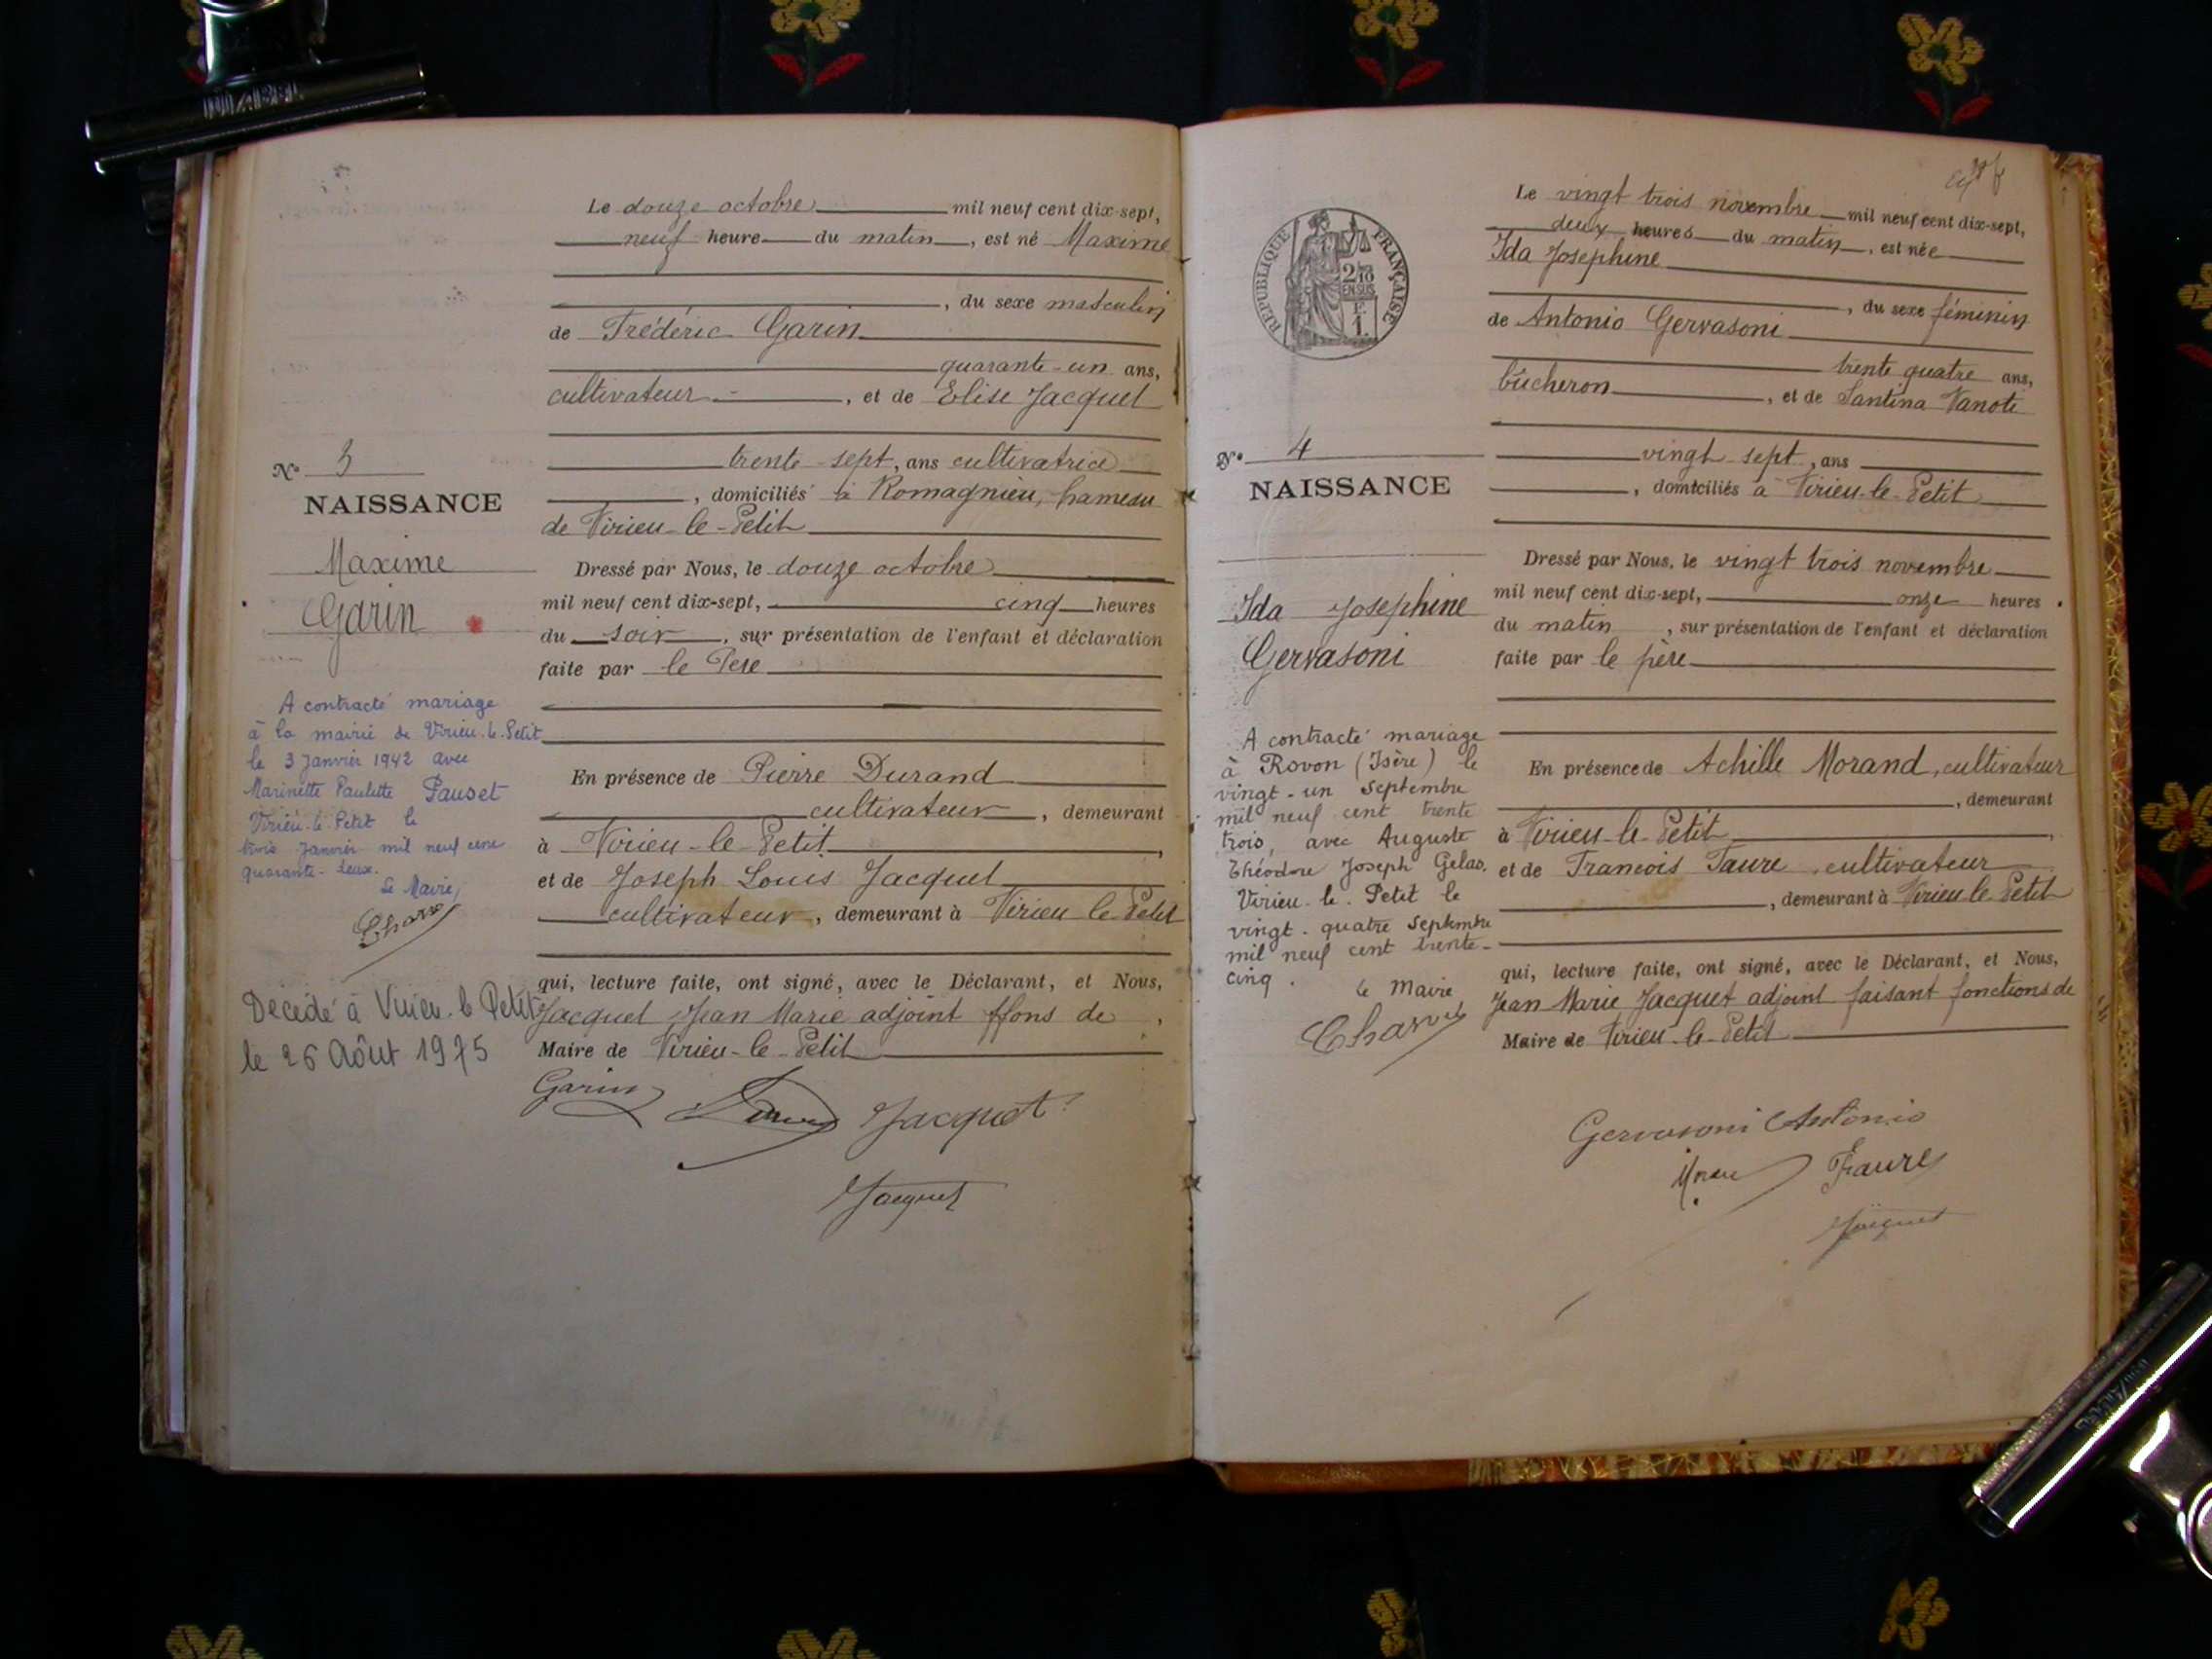 Le douze octobre mil neuf cent dix-sept,
neuf heure du matin, est né Maxime
, du sexe masculin
de Frédéric Garin
quarante-un ans,
cultivateur, et de Elise Jacquet
trente-sept, ans cultivatrice
, domiciliés à Romagnieu, hameau
de Virieu-le-Petit
Dressé par Nous, le douze octobre
mil neuf cent dix-sept, cinq heures
du soir, sur présentation de l'enfant et déclaration
faite par le Père
En présence de Pierre Durand
cultivateur, demeurant
à Virieu-le-Petit,
et de Joseph Louis Jacquet
cultivateur, demeurant à Virieu le Petit
qui, lecture faite, ont signé, avec le Déclarant, et Nous,
Jacquet Jean Marie adjoint ffons de
Maire de Virieu-le-Petit
Garin Jacquet
Jacquet
N° 3
NAISSANCE
Maxime
Garin
A contracté mariage
à la mairie de Virieu-le-Petit
le 3 Janvier 1942 avec
Marinette Paulette Pauset
Virieu-le-Petit le
trois Janvier mil neuf cent
quarante-deux.
Le Maire,
Décédé à Virieu-le Petit
le 26 Août 1975
Le vingt trois novembre mil neuf cent dix-sept,
deux heures du matin, est née
Ida Josephine
, du sexe féminin
de Antonio Gervasoni
trente quatre ans,
bûcheron, et de Santina Vanoti
vingt sept, ans
, domiciliés à Virieu-le-Petit
Dressé par Nous, le vingt trois novembre
mil neuf cent dix-sept, onze heures
du matin, sur présentation de l'enfant et déclaration
faite par le père
En présence de Achille Morand, cultivateur
, demeurant
à Virieu-le-Petit,
et de Francois Faure, cultivateur
, demeurant à Virieu le Petit
qui, lecture faite, ont signé, avec le Déclarant, et Nous,
Jean Marie Jacquet adjoint faisant fonctions de
Maire de Virieu-le-Petit
Gervasoni Antonio
Faure
Jacquet
REPUBLIQUE FRANÇAISE
2/10
EN SUS
F.
1.
N° 4
NAISSANCE
Ida Josephine
Gervasoni
A contracté mariage
à Rovon (Isère) le
vingt-un Septembre
mil neuf cent trente
trois, avec Auguste
Théodore Joseph Gelas.
Virieu-le-Petit le
vingt-quatre Septembre
mil neuf cent trente-
cinq.
Le Maire